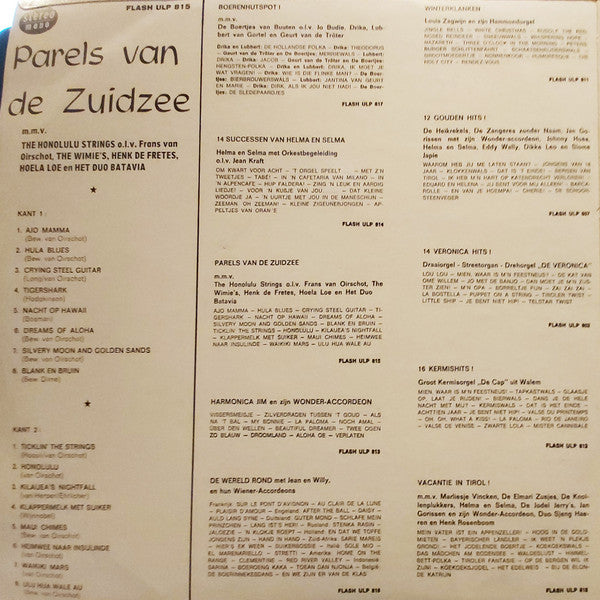 stereo
mono
FLASH ULP 815
Parels van
de Zuidzee
m.m.v.
THE HONOLULU STRINGS o.l.v. Frans van
Oirschot, THE WIMIE'S, HENK DE FRETES,
HOELA LOE en HET DUO BATAVIA
KANT 1:
1. AJO MAMMA
(Bew. van Oirschot)
2. HULA BLUES
(Bew. van Oirschot)
3. CRYING STEEL GUITAR
(Long/van Oirschot)
4. TIGERSHARK
(Hodgkinson)
5. NACHT OP HAWAII
(Bosman)
6. DREAMS OF ALOHA
(Bew. van Oirschot)
7. SILVERY MOON AND GOLDEN SANDS
(Bew. van Oirschot)
8. BLANK EN BRUIN
(Bew. Dirne)
KANT 2:
1. TICKLIN THE STRINGS
(Hoopii/van Oirschot)
2. HONOLULU
(van Oirschot)
3. KILAUEA'S NIGHTFALL
(van Herpen/Ehrlicher)
4. KLAPPERMELK MET SUIKER
(Wijnnobel)
5. MAUI CHIMES
(Bew. van Oirschot)
6. HEIMWEE NAAR INSULINDE
(Bew. van Oirschot)
7. WAIKIKI MARS
(van Oirschot)
8. ULU HUA WALE AU
(Bew. van Oirschot)
BOERENHUTSPOT !
m.m.v.
De Boertjes van Buuten o.l.v Jo Budie, Drika, Lub-
bert van Gortel en Geurt van de Tröter
Drika en Lubbert: DE HOLLANDSE POLKA — Drika: THEODORUS
DRIKA — Drika: JACOB — Geurt van de Tröter en De Boertjes:
HENGSTEN-POLKA — Drika en Lubbert: DRIKA, IK MOET JE
WAT VRAGEN! — Drika: WIE IS DIE FLINKE MAN? — De Boer-
tjes: BIERBROUWERSWALS — Lubbert: JANTINA VAN GEURT
EN MARIE — Drika: DIRK ALS IK JOU NIET HAD! — De Boer-
tjes: DE SLEDEPAARDJES
FLASH ULP 817
14 SUCCESSEN VAN HELMA EN SELMA
Helma en Selma met Orkestbegeleiding
o.l.v. Jean Kraft
OM KWART VOOR ACHT — 'T ORGEL SPEELT — MET Z'N
TWEETJES — TABE! — IN 'N CAFETARIA VAN MILANO — IN
'N ALPENCAFE — HUP FALDERA! — ZING 'N LEUK EN AARDIG
LIEDJE! — VOOR 'N KUSJE VAN JOU — DAT KLEINE
WOORDJE JA — 'N UURTJE MET JOU IN DE MANESCHIJN —
ZEEMAN OH ZEEMAN! — KLEINE ZIGEUNERJONGEN — AP-
PELTJES VAN ORAN'E
FLASH ULP 814
PARELS VAN DE ZUIDZEE
m.m.v.
The Honolulu Strings o.l.v. Frans van Oirschot, The
Wimie's, Henk de Fretes, Hoela Loe en Het Duo
Batavia
AJO MAMMA — HULA BLUES — CRYING STEEL GUITAR — TI-
GERSHARK — NACHT OP HAWAII — DREAMS OF ALOHA —
SILVERY MOON AND GOLDEN SANDS — BLANK EN BRUIN —
TICKLIN' THE STRINGS — HONOLULU — KILAUEA'S NIGHTFALL —
KLAPPERMELK MET SUIKER — MAUI CHIMES — HEIMWEE
NAAR INSULINDE — WAIKIKI MARS — ULU HUA WALE AU
FLASH ULP 815
HARMONICA JIM en zijn WONDER-ACCORDEON
VISSERSMEISJE — ZILVERDRADEN TUSSEN 'T GOUD — ALS
NA 'T BAL — MY BONNIE — LA PALOMA — NOCH AMAL —
ÜBER DEN WELLEN — BEAUTIFUL DREAMER — TWEE OGEN
ZO BLAUW — DROOMLAND — ALOHA OE — VERLATEN
FLASH ULP 813
DE WERELD ROND met Jean en Willy,
en hun Wiener-Accordeons
Frankrijk: SUR LE PONT D'AVIGNON — AU CLAIR DE LA LUNE
— PLAISIR D'AMOUR — Engeland: AFTER THE BALL — DAISY —
AULD LANG SYNE — Duitsland: GUTER MOND — SCHLAFE MEIN
PRINZCHEN — LANG IST'S HER! — Rusland: STENKA RASIN —
JALOEZIE — 'N KLOKJE ROEPT — Holland: EN DAT WE TOFFE
JONGENS ZIJN — HAND IN HAND — Zuid-Afrika: SARIE MAREIS
— HIER'S EK WEER — SUIKERBOSSIE — Italië: SOLE MIO —
EL MARENARIELLO — STRETTI — Amerika: HOME ON THE
RANGE — CLEMENTINE — RED RIVER VALLEY — Indonesië:
SARINA — BOERENG KAKA — TOEAN DAN NJONJA — België:
DE BOERINNEKESDANS — EN WE ZIJN ER VAN DE KLAS
FLASH ULP 816
WINTERKLANKEN
Louis Zagwijn en zijn Hammondorgel
JINGLE BELLS — WHITE CHRISTMAS — RUDOLF THE RED-
NOSED REINDEER — SNEEUWWALS —
NAZARETH — THREE O'CLOCK IN THE MORNING — PETERS-
BURGER SCHLITTENFAHRT — SCHAATSENRIJDERSWALS
THE
HOLY CITY — RENDEZ-VOUS
FLASH ULP 811
12 GOUDEN HITS !
De Heikrekels, De Zangeres zonder Naam, Jan Go-
rissen met zijn Wonder-accordeon, Johnny Hoes,
Helma en Selma, Eddy Wally, Dikke Leo en Slome
Japie
WAAROM HEB JIJ ME LATEN STAAN? — JONGENS VAN IK
JAAR — KLOKKENWALS — DAT IS 'T EINDE! — BERGEN VAN
TIROL — IK HEB M'N HART OP KATENDRECHT VERLOREN! —
EDUARD EN HELENA — JIJ BENT VOOR MIJ ALLEEN! — BARCA-
ROLLE — EN VAN JE HOEMPA! — CHERIE! — DE BOROOR-
STEENVEGER
FLASH ULP 807
14 VERONICA HITS !
Draaiorgel - Streetorgan - Drehorgel „DE VERONICA"
LOU LOU — MIEN, WAAR IS M'N FEESTNEUS? — DE KAT VAN
OME WILLEM — JO MET DE BANJO — DAN MOET JE M'N ZUS-
TER ZIEN! — M'N OPA — BORRELTJE PIJN — ZAI ZAI ZAI —
LA BOSTELLA — PUPPET ON A STRING — TIROLER TWIST —
LITTLE SHIP — JE BENT NIET HIP! — TELSTAR TWIST
FLASH ULP 803
16 KERMISHITS !
Groot Kermisorgel „De Cap" uit Walem
MIEN, WAAR IS M'N FEESTNEUS! — TAPKASTWALS — GLAASJE
OP, LAAT JE RIJDEN! — BIERWALS — DANS JE DE HELE
NACHT MET MIJ? — KERMISWALS — DAT IS HET EINDE —
ACHTTIEN JAAR — JE BENT NIET HIP! — VALSE DU PRINTEMPS
— OH, OH, WHAT A KISS! — LA PALOMA — RIO DE JANEIRO —
VALSE DE VENISE — ZWARTE LOLA — MISTER CANNIBALE
FLASH ULP 812
VACANTIE IN TIROL !
m.m.v. Marliesje Vincken, De Elmari Zusjes, De Knol-
lenplukkers, Helma en Selma, De Jodel Jerry's, Jan
Gorissen en zijn Wonder-Accordeon, Duo Sjang Ha-
ren en Henk Rosenboom
MEIN VATER IST EIN APPENZELLER! — HOOG IN DE GOLD-
MIETEN — BAYERISCHER LÄNDLER — IK WEET 'N PLEKJE
GROND! — HET JODELENDE BOERTJE — KOEKOEKSWALS —
DAS MÄDCHEN AM BODENSEE — WALDESLUST — HIMMEL-
BETT-POLKA — TIROLER FANTASIE — OP DE BERGEN WIL IK
ZIJN! — KOEKOEKSJODEL — HET EDELWEIS — BIJ DE BLON-
DE KATRIJN
FLASH ULP 818